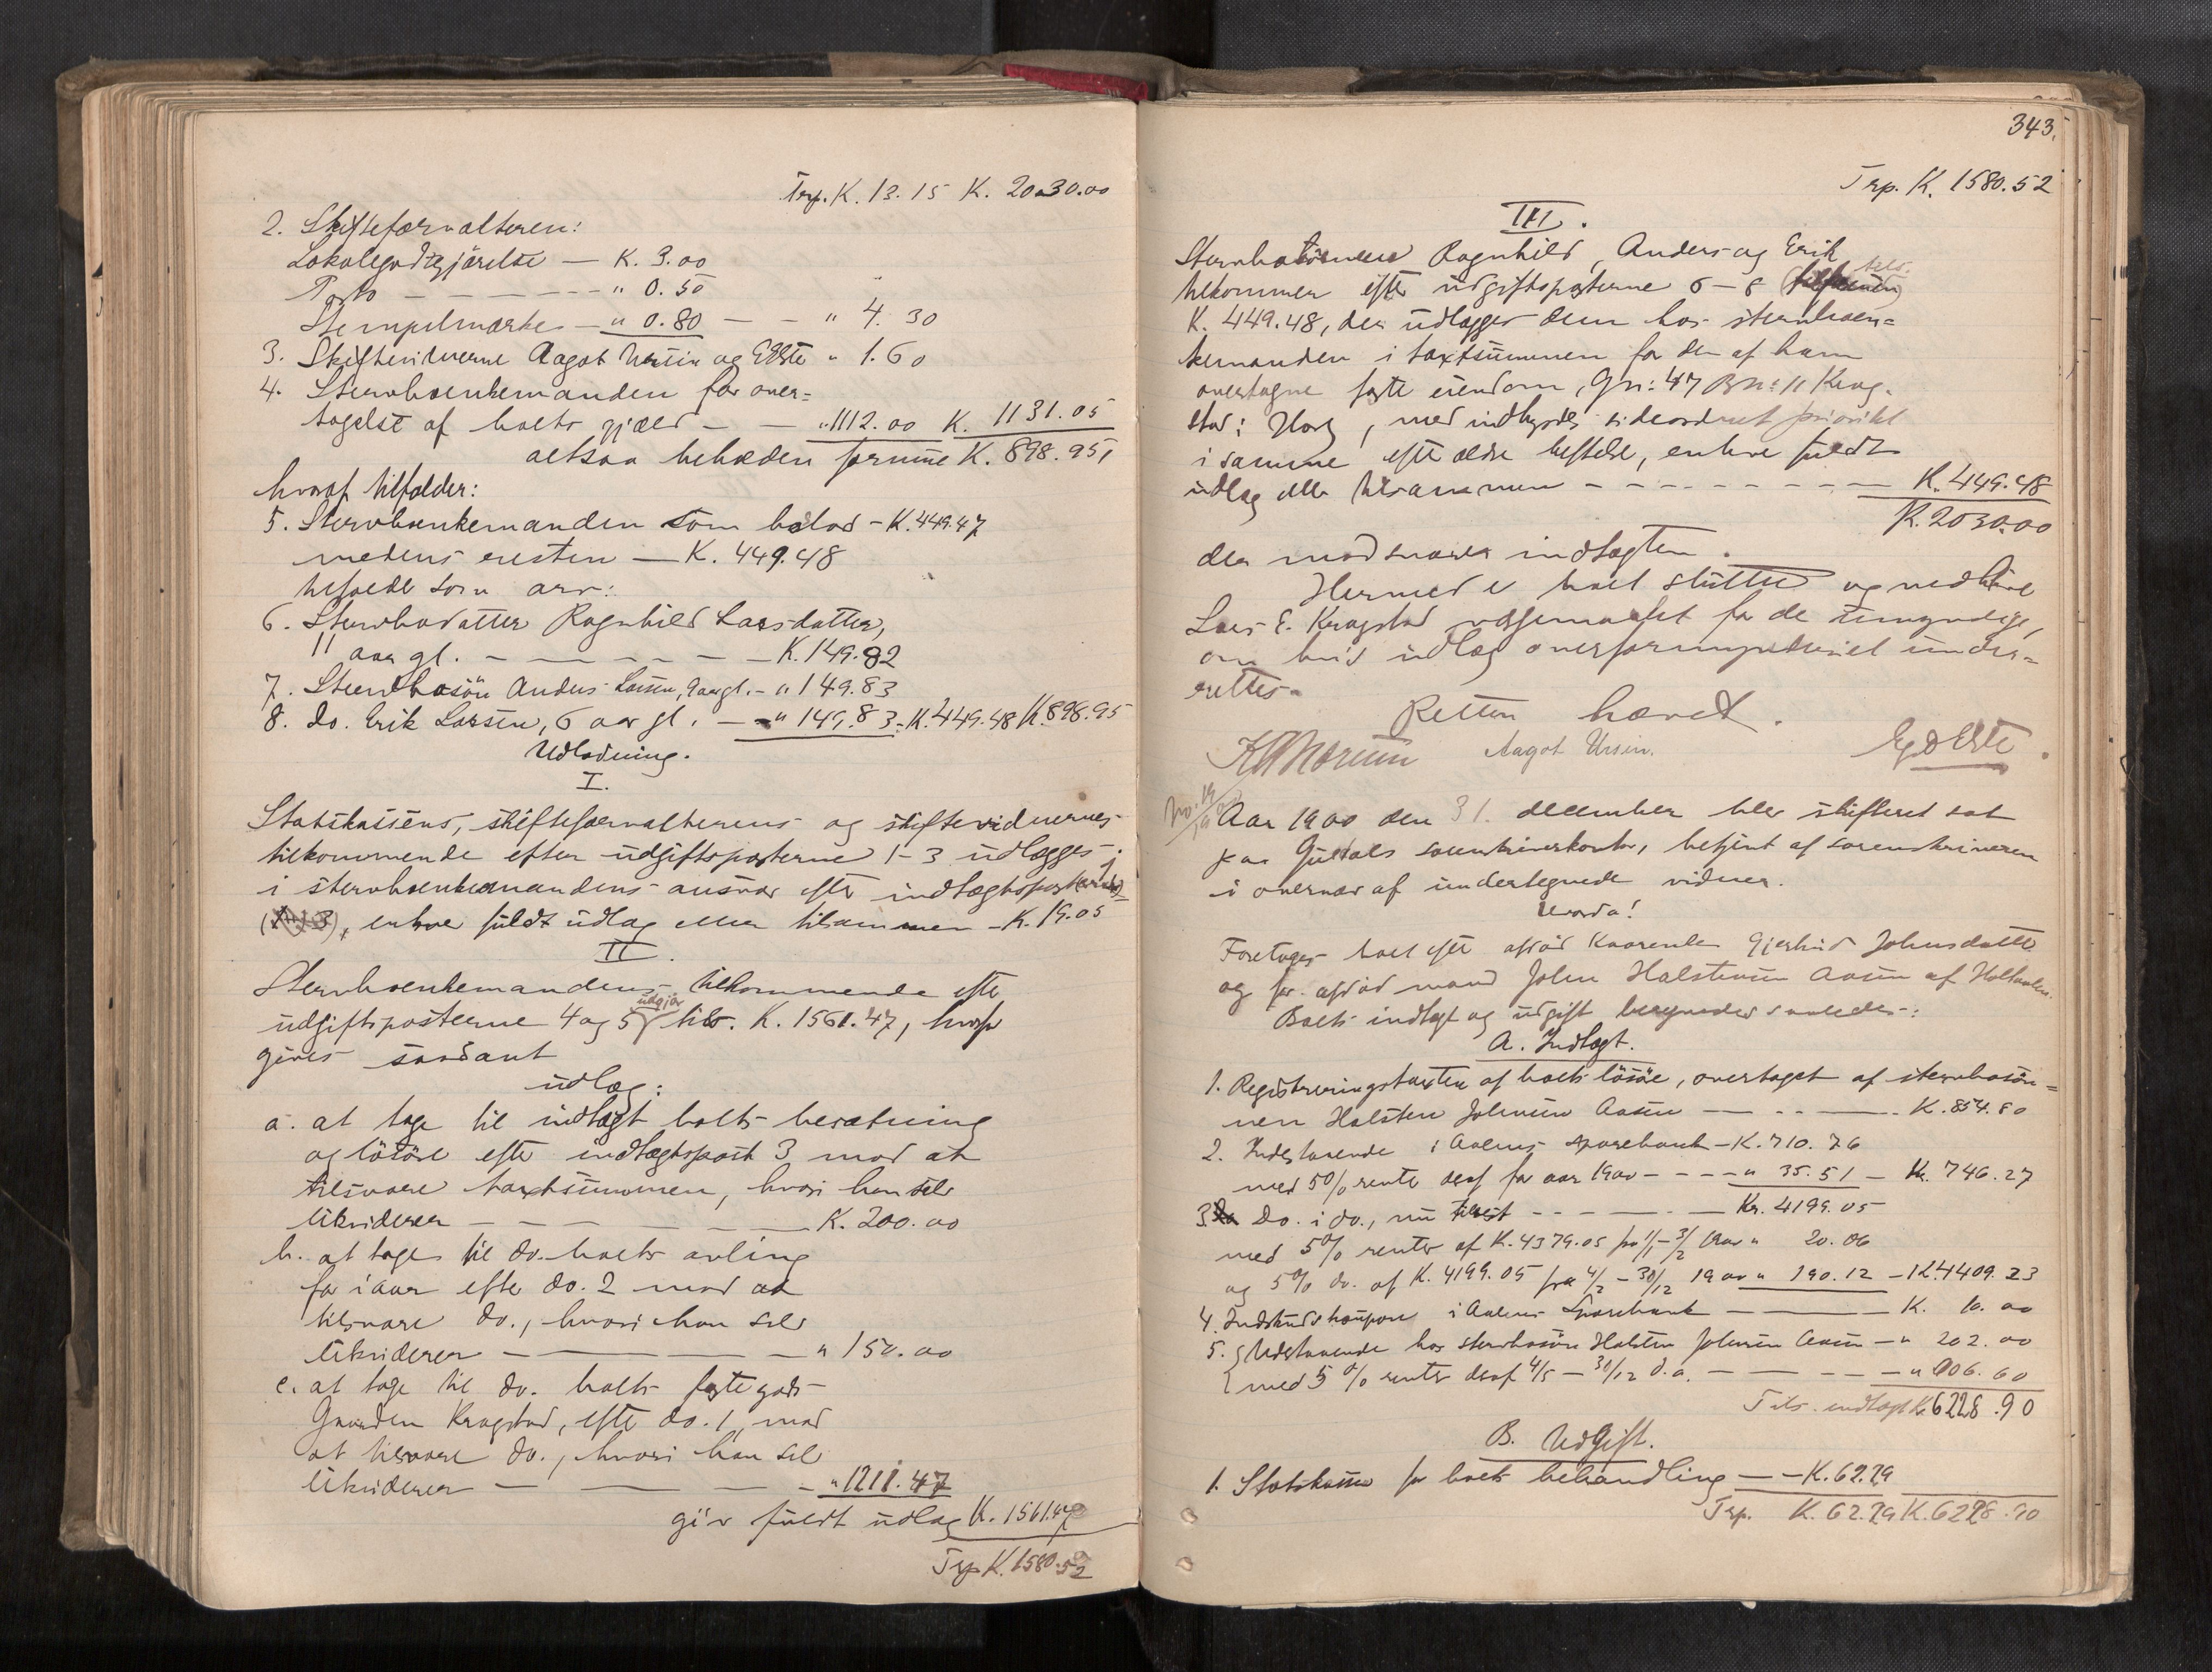 Trp. K. 13.15 K. 2030.00
2. Skifteforvalteren:
Lokalegodtgjørelse — K. 3.00
Porto — — — — " 0.50
Stempelmærke — " 0.80 — — " 4.30
3. Skiftevidnerne Aagot Ursin og Egste " 1.60
4. Stervboenkemanden for over=
tagelse af boets gjæld — — " 1112.00 K. 1131.05
altsaa beholden formue K. 898.95,
hvoraf tilfalder:
5. Stervboenkemanden som boslod - K. 449.47
medens resten — K. 449.48
tilfalde som arv:
6. Stervbodatter Ragnhild Larsdatter,
11 aar gl. — — — — — K. 149.82
7. Stervbosön Anders Larsen, 9 aar gl. - " 149.83
8. do. Erik Larsen, 6 aar gl. — " 149.83 - K. 449.48 K. 898.95
Udlodning.
I.
Statskassens, skifteforvalterens og skiftevidnernes
tilkommende efter udgiftsposterne 1-3 udlægges
i stervboenkemandens ansvar efter indtægtsposterne
, enhver fuldt udlæg eller tilsammen - K. 19.05
II.
Stervboenkemandens tilkommende efter
udgiftsposterne 4 og 5 udgjør tils. K. 1561.47, hvorfor
gives saadant
udlæg:
a. at tage til indtægt boets besætning
og lösöre efter indtægtspost 3 mod at
tilsvare taxtsummen, hvori han selv
likviderer — — — — — K. 200.00
b. at tage til do. boets avling
for i aar efter do. 2 mod at
tilsvare do., hvori han selv
likviderer — — — — " 150.00
c. at tage til do. boets faste gods
Gaarden Kragstad, efter do. 1, mod
at tilsvare do., hvori han selv
likviderer — — — — " 1211.47
giv fuldt udlæg K. 1561.47
Trp K. 1580.52
343.
Trp. K. 1580.52
III.
Stervbobörnene Ragnhild, Anders og Erik
tilkommer efter udgiftsposterne 6-8
K. 449.48, der udlægges dem hos stervboen=
kemanden i taxtsummen for den af ham
overtagne faste eiendom, Gn: 47 Bn: 11 Krag-
stad i Horg, med indbyrdes sideordnet prioritet
i samme efter ældre heftelse, enhver fuldt
udlæg eller tilsammen — — — — — K. 449.48
K. 2030.00
der modsvarer indtægten.
Hermed er boet sluttet og
Lars E. Kragstad værgemaalet for de umyndige,
om hvis udlæg overformynderiet under=
rettes.
Retten hævet.
Aagot Ursin.
Aar 1900 den 31. december blev skifteret sat
paa Guldals sorenskriverkontor, betjent af sorenskriveren
i overvær af undertegnede vidner.
Hvorda!
Foretoges boet efter afdöd Kaarenke Gjertrud Johnsdatter
og før afdöd mand John Halstensen Aasen af Holtaalen.
Boets indtægt og udgift beregnedes saaledes:
A. Indtægt.
1. Registreringstaxten af boets lösöre, overtaget af stervbosön=
nen Halsten Johnsen Aasen — — — — K. 854.80
2. Indestaaende i Aalens sparebank - K. 710.76
med 5% rente deraf for aar 1900 - - - " 35.51 — Kr. 746.27
3. Do. i do., nu — — — — Kr. 4199.05
med 5% renter af K. 4379.05 fra 1/1 - 3/2 1900 " 20.06
og 5% do. af K. 4199.05 fra 4/2 - 30/12 1900 " 190.12 - K. 4409.23
4. Indskudskoupon i Aalens Sparebank — — — K. 10.00
5. Udestaaende hos stervbosön Halsten Johnsen Aasen — " 202.00
med 5% renter deraf 4/5 — 30/12 d.a. — — — " 006.60
Tils. indtægt K. 6228.90
B. Udgift.
1. Statskassen for boets behandling — — K. 62.29
Trp. K. 62.29 K. 6228.90